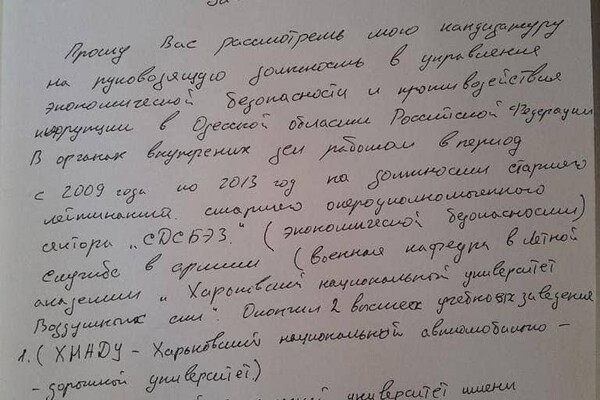 Прошу Вас рассмотреть мою кандидатуру
на руководящую должность в управление
экономической безопасности и противодействия
коррупции в Одесской области Российской Федерации
В органах внутрених дел работал в период
с 2009 года по 2013 год на должности старшего
лейтинанта старшего оперуполномоченного
сектора „СДСБЭЗ." (экономической безопасности)
службе в армии (военная кафедра в лётной
академии „Харьковский национальный университет
Воздушных сил". Окончил 2 высших учебных заведения
1. (ХНАДУ - Харьковский национальный автомобильно -
- дорожной университет)
университет имени